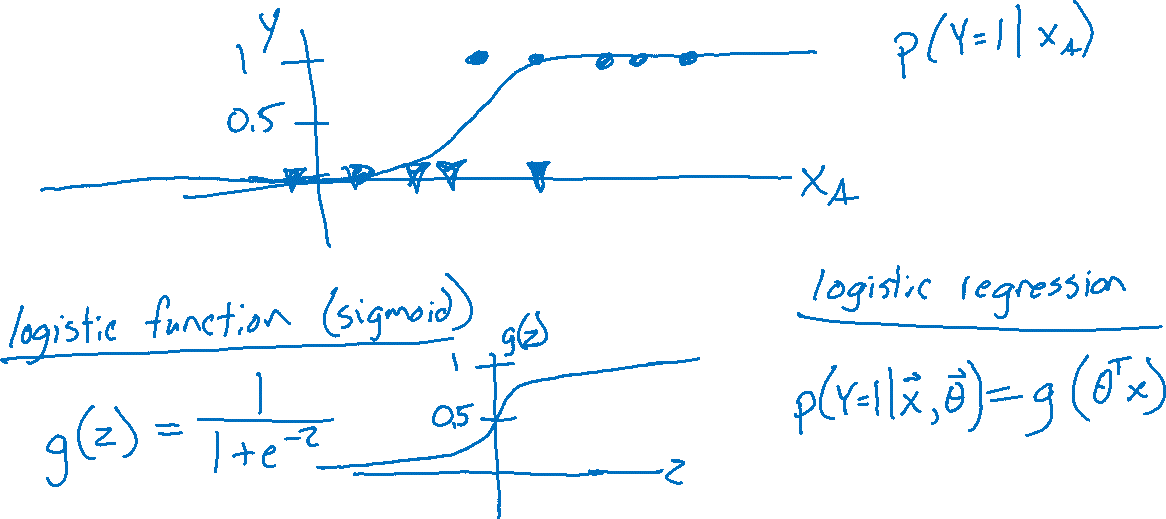 Y
1
0.5
p(Y=1|x_A)
x_A
logistic function (sigmoid)
g(z) = 1/(1+e^-z)
g(z)
1
0.5
z
logistic regression
p(Y=1|x⃗, θ⃗) = g(θ^T x)